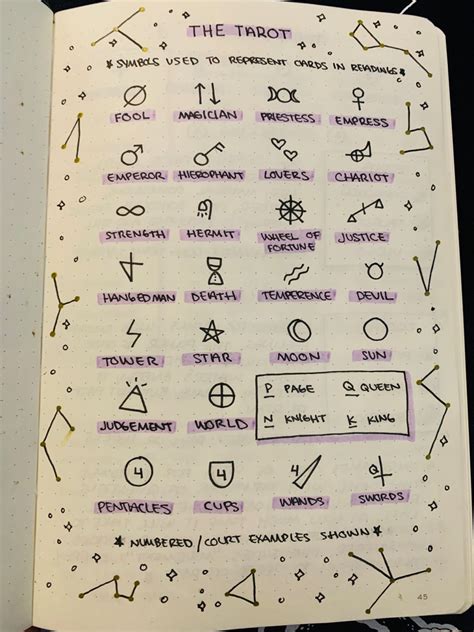 THE TAROT
* SYMBOLS USED TO REPRESENT CARDS IN READINGS *
FOOL MAGICIAN PRIESTESS EMPRESS
EMPEROR HIEROPHANT LOVERS CHARIOT
STRENGTH HERMIT WHEEL OF FORTUNE JUSTICE
HANGEDMAN DEATH TEMPERENCE DEVIL
TOWER STAR MOON SUN
JUDGEMENT WORLD
P PAGE Q QUEEN
N KNIGHT K KING
4 4 4 4
PENTACLES CUPS WANDS SWORDS
* NUMBERED/COURT EXAMPLES SHOWN *
45